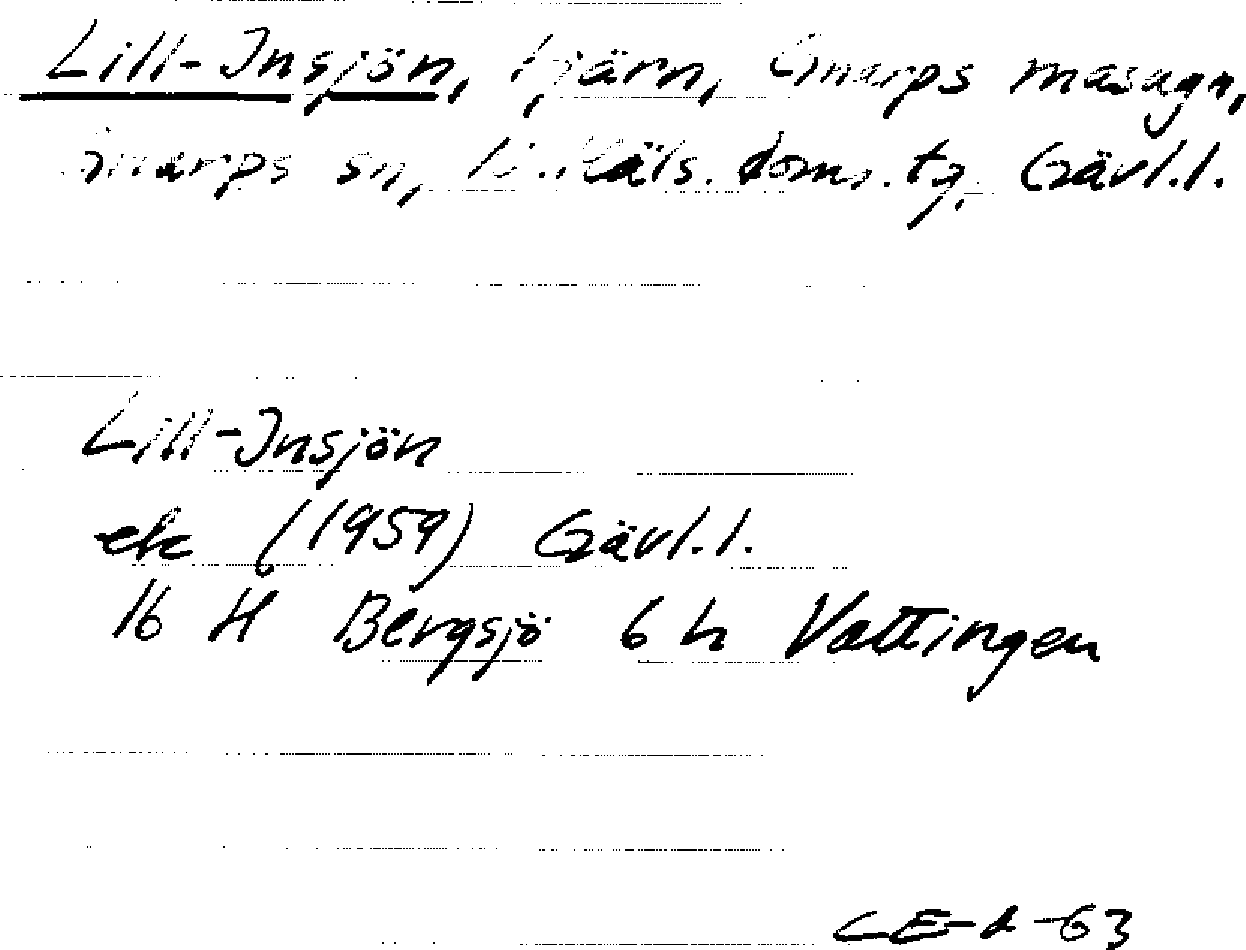 Lill-Insjön, tjärn, Gnarps masugn,
Gnarps sn, N. Häls. doms. tg, Gävl.l.
Lill-Insjön
ek (1959) Gävl.l.
16 H Bergsjö 6 h Vattingen